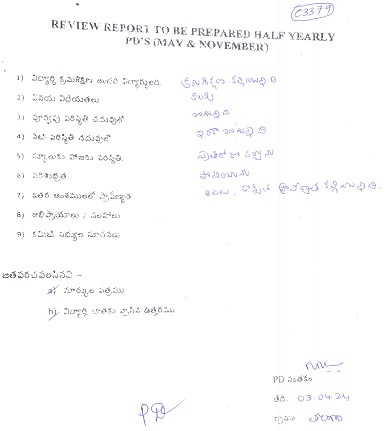 C3379
REVIEW REPORT TO BE PREPARED HALF YEARLY
PD'S (MAY & NOVEMBER)
1) విద్యార్థి క్రమశిక్షణ అందరి విద్యార్థులది. క్రమశిక్షణ కల్గియున్నది
2) వినయ విధేయతలు కలవు
3) పూర్వపు పరిస్థితి చదువులో బాగున్నది
4) నేటి పరిస్థితి చదువులో ఇలా బాగున్నది
5) స్కూలుకు హాజరు పరిస్థితి. ప్రతిరోజు
6) పరిశుభ్రత
7) ఇతర అంశములలో ప్రావీణ్యత ఆటలు,
8) అభిప్రాయాలు / సలహాలు
9) కమిటి సభ్యుల సూచనలు
జతపరచవలసినవి :-
a) మార్కుల పత్రము
b) విద్యార్థి దాతకు వ్రాసిన ఉత్తరము
PD సంతకం
తేది. 03-04-24
గ్రామం
PD